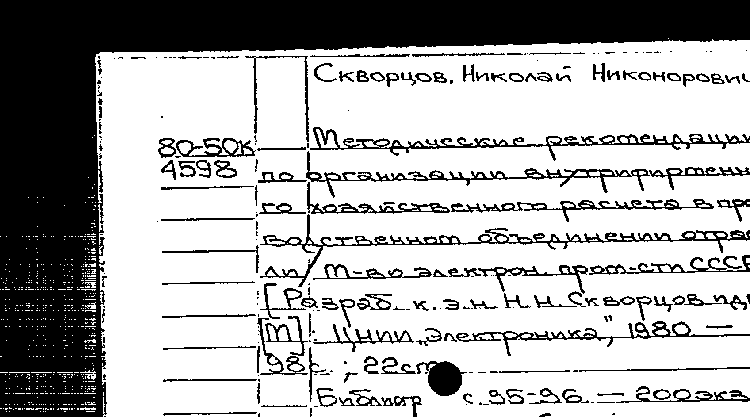 Скворцов, Николай Никонорович
80-50к
4598
Методические рекомендации
по организации внутрифирменно
го хозяйственного расчета в про
водственном объединении отрас
ли / М-во электрон. пром-сти СССР
[Разраб. к.э.н. Н.Н. Скворцов
[М] ЦНИИ „Электроника", 1980 —
98с. ; 22см
Библиогр с. 95-96. — 200экз